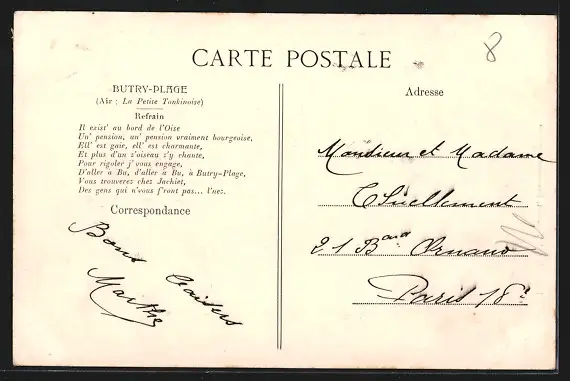 CARTE POSTALE
8
BUTRY-PLAGE
(Air : La Petite Tonkinoise)
Refrain
Il exist' au bord de l'Oise
Un' pension, un' pension vraiment bourgeoise,
Ell' est gaie, ell' est charmante,
Et plus d'un z'oiseau s'y chante,
Pour rigoler j'vous engage,
D'aller à Bu, d'aller à Bu, à Butry-Plage,
Vous trouverez chez Jachiet,
Des gens qui n'vous f'ront pas... l'nez.
Correspondance
Bons baisers
Marthe
Adresse
Monsieur et Madame
21 Bard Ornano
Paris 18e